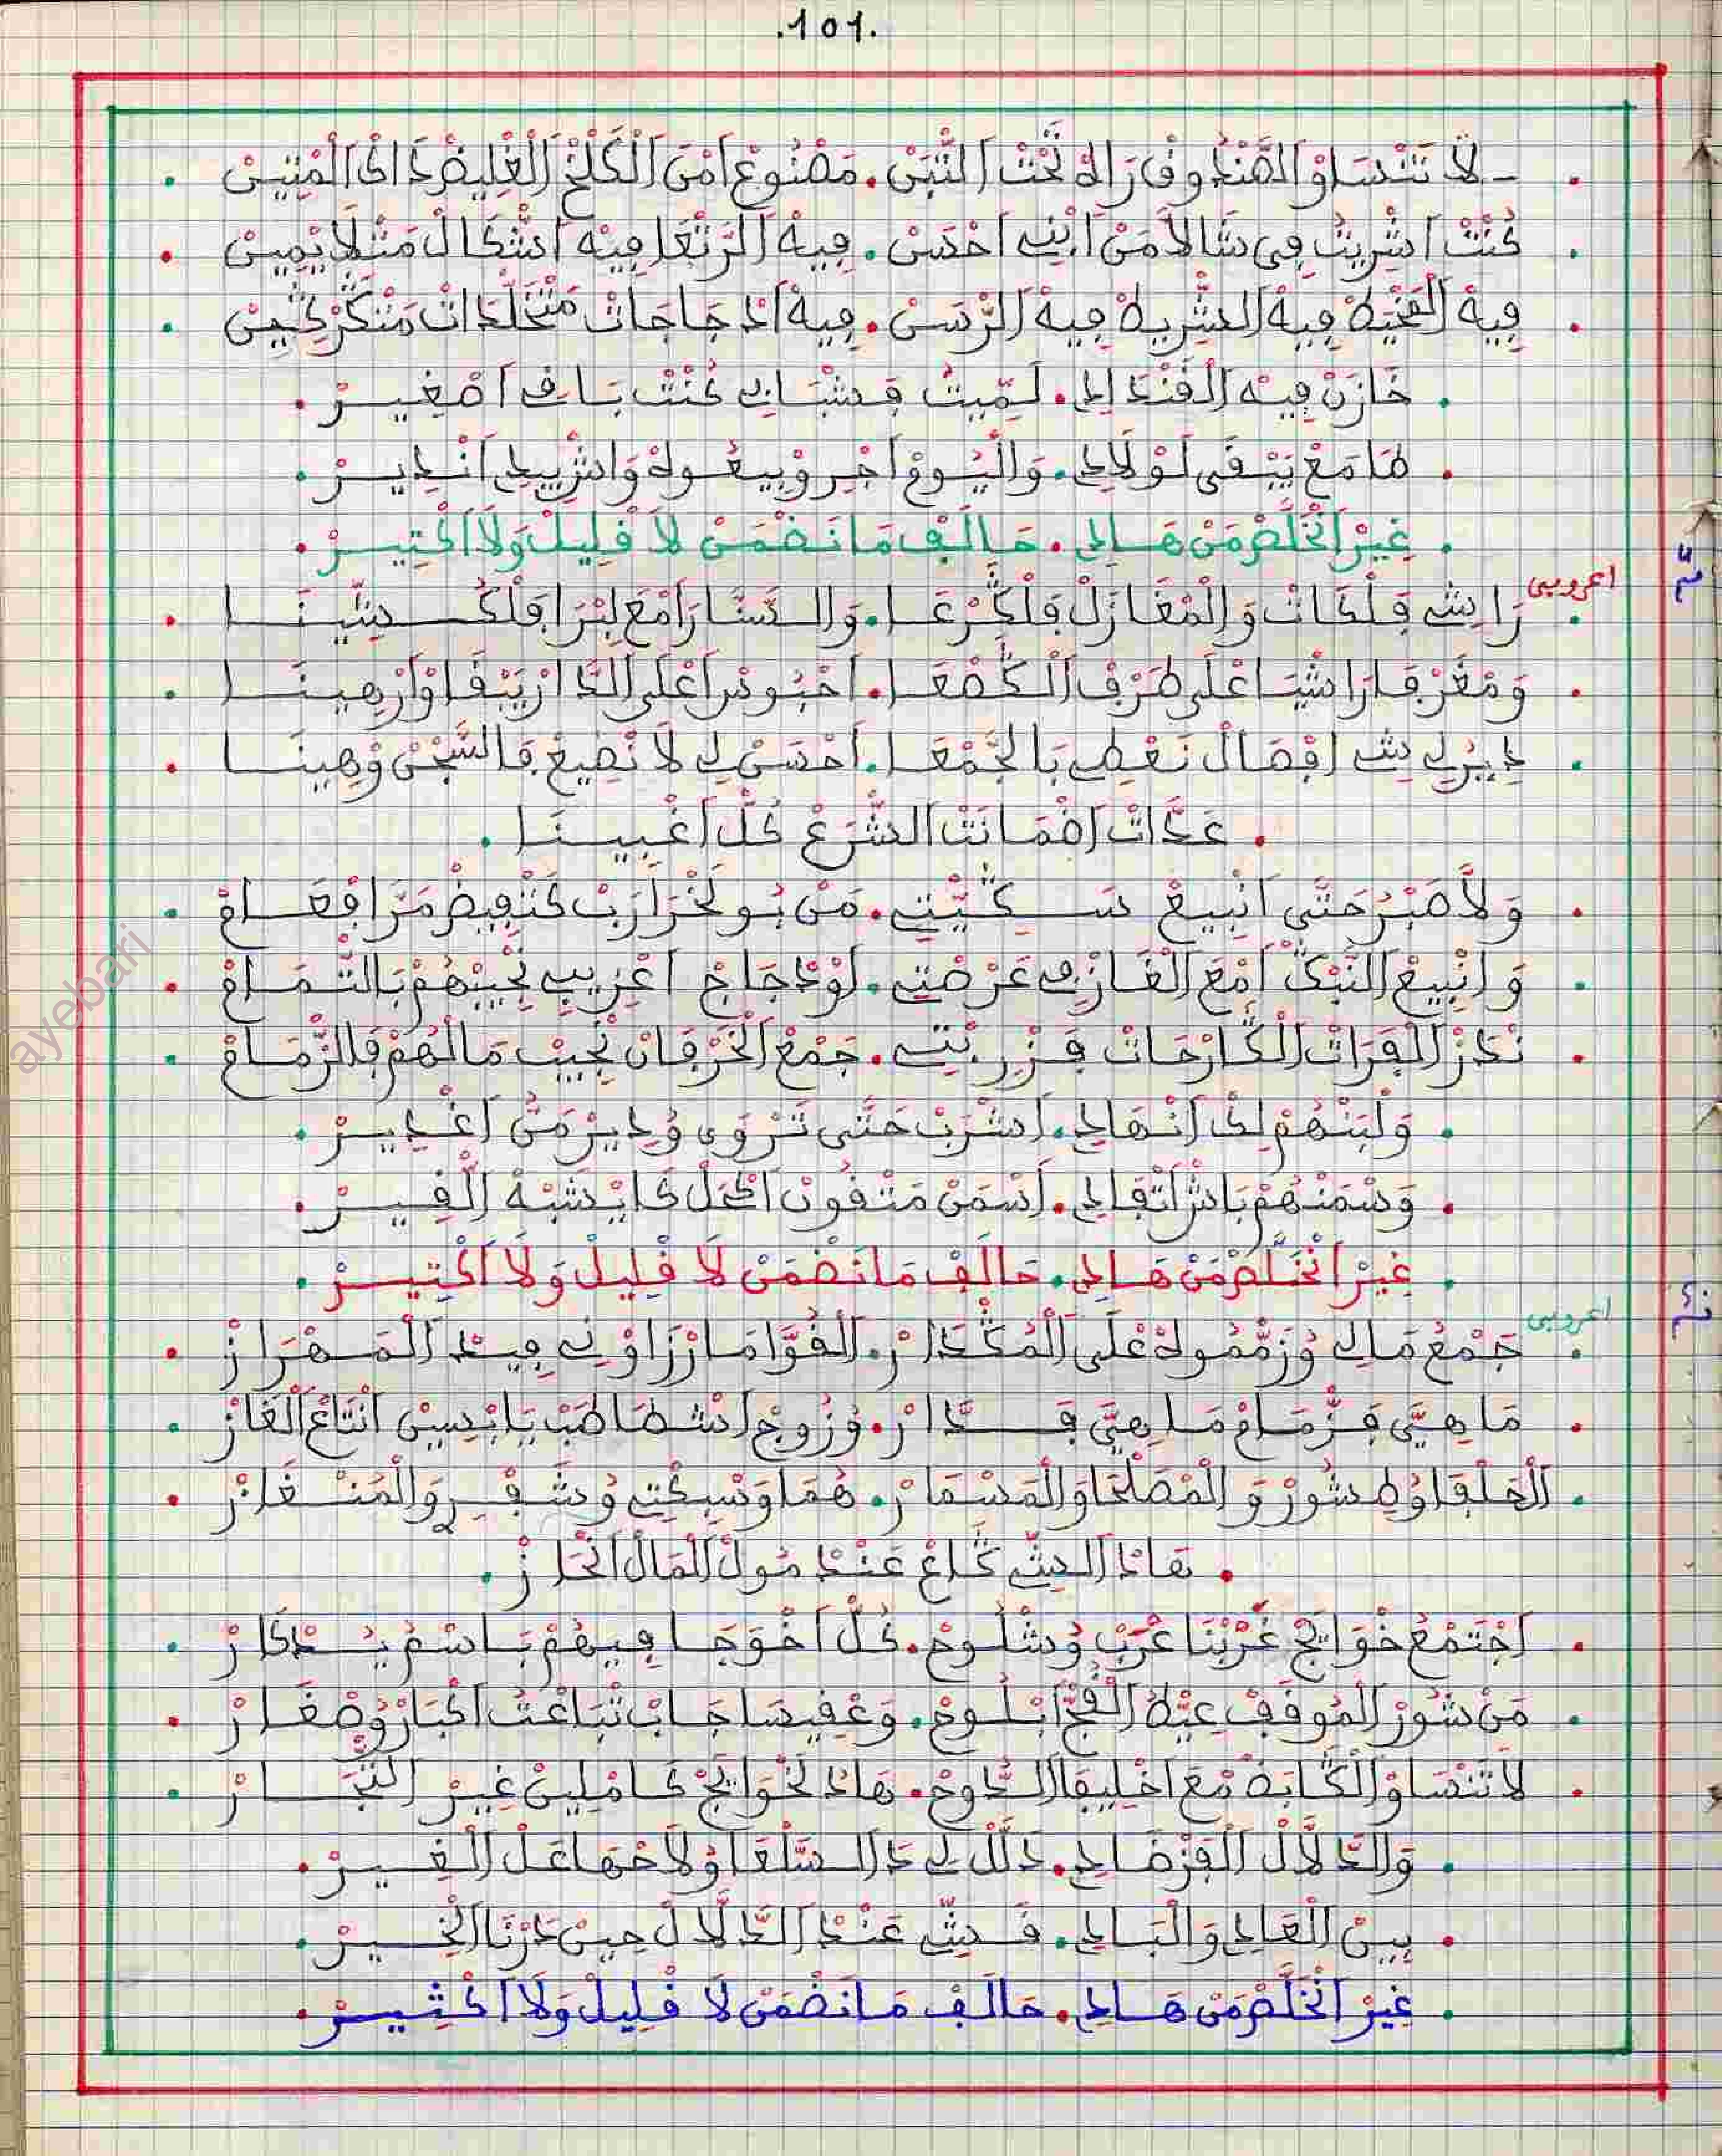 .101.
ـ لَا تَنْسَاوْ الصَّنْدُوقْ رَاهْ تَحْتْ التّْبَنْ. مَصْنُوعْ امْنَ الْكَلْخْ الْغْلِيضْ دَاكْ الْمْتِينْ.
كُنْتْ اشْرِيتُ فِي سَالَا مَنْ ابْنِي احْسَنْ. فِيهْ الرَّتْعَا فِيهْ اشْكَالْ مَثْلَا يْمِينْ.
فِيهْ الْخْيْطْ فِيهْ الشّْرِيطْ فِيهْ الرّْسَنْ. فِيهْ ادْجَاجَاتْ مْخَلّْدَاتْ
خَازَنْ فِيهْ الْقَنْدَالِي. لَمِّيتُ فَشْبَابِي كُنْتْ بَاقِي اصْغِيرْ.
طَامَعْ يَبْقَى لَوْلَادِي. وَالْيُومْ اجْرِ وْبِيعُوهْ وَاشْ بِيدِي انْدِيرْ.
غِيرْ انْخَلَّصْ مَنْ هَادِي. حَالَفْ مَا نَضْمَنْ لَا قْلِيلْ وَلَا اكْتِيرْ.
اعروبي
رَا يْشِي فَلْكَاتْ وَالْمْغَازَلْ فَلْكَّرْعَا. وَالسَّنَّارَا مْعَ لِبْرَا فَلْكَشِّينَا.
وَمْغَرْفَا رَاشْيَا عْلَى طَرْفْ الْكَصْعَا. اخْبُوشْ اعْلَى الدَّارْ يَبْقَاوْ ارْهِينَا.
دِيبُرْ لِي شِي افْصَالْ نَعْطِي بَالْجَمْعَا. احْسَنْ لِي لَا نْطِيعْ فَالسّْجَنْ وْهِينَا.
عَدَّاتْ اضْمَانَتْ الشّْرَعْ كُلّْ اغْبِينَا.
وَلَا صْبَرْ حَتَّى انْبِيعْ سَكِّيتِي. مَنْ بُو لَخْرَارَبْ كَتْفِيضْ مَرَّا فْعَامْ.
وَانْبِيعْ النَّبْكْ امْعَ الْغَازِي عَرْضْتِي. اوْدْجَاجْ اعْرِيبْ نْجِيبْهُمْ بَالتّْمَامْ.
نْدْكَرْ الْبَقْرَاتْ الْكَّارْحَاتْ فَزْرِيبْتِي. جَمْعْ الْخَرْفَانْ نْجِيبْ مَالْهُمْ فَالزّْمَامْ.
وَلْبَنْهُمْ لِكْ انْهَادِي. اشْرَبْ حَتَّى تَرْوَى وُدِيرْ مَنُّ اغْدِيرْ.
وَسْمَنْهُمْ بَاشْ اتْفَادِي. اسْمَنْ مَتْقُونْ اكْحَلْ كَا يْشَبْهْ الْقِيرْ.
غِيرْ انْخَلَّصْ مَنْ هَادِي. حَالَفْ مَا نَضْمَنْ لَا قْلِيلْ وَلَا اكْتِيرْ.
اعروبي
جَمْعُ مَالِي وُزَمّْمُوهْ عْلَى الْمُكْدَارْ. الْقُوَّامَا رْزَاوْنِي فِيدْ الْمَهْرَازْ.
مَا هِيَّ فَزّْمَامْ مَا هِيَّ فَدَّارْ. وُزُوجْ اشْطَاطَبْ يَابْسِينْ انْتَاعْ الْغَازْ.
الْحَلْفَا وُطِشُورْ وَالْمَصْلْحَا وَالْمَسْمَارْ. هُمَا وَسِكْتِي وُشَفْرِ وَالْمُنْغَازْ.
هَادْ الشِّي ضَاعْ عَنْدْ مُولْ الْمَالْ انْحَازْ.
اجْتَمْعُ حْوَايَجْ غَرْبْنَا عَرَبْ وُشْلُوحْ. كُلّْ اخْوَجَا فِيهُمْ بَاسْمُ يُدْكَارْ.
مَنْ شُورْ الْمُوقَفْ عِيّْطُ الْفَجّْ ابْلُوحْ. وَعْفِيسَا جَابْ تْبَاعْتُ اكْبَارْ وُصْغَارْ.
لَا تَنْسَاوْ الْكَّابَصْ مْعَ اخْلِيفَا الدُّوحْ. هَادْ لَحْوَايَجْ كَامْلِينْ غِيرْ التُّجَّارْ.
وَالدَّلَّالْ الْفَرْضَادِي. دَلَّلْ لِي دَا السَّلْعَا وُلَاحْهَا عَلْ الْغِيرْ.
بِينْ الْغَادِي وَالْبَادِي. فَشِّي عَنْدْ الدَّلَّالْ حِينْ دَرْنَا الْخِيرْ.
غِيرْ انْخَلَّصْ مَنْ هَادِي. حَالَفْ مَا نَضْمَنْ لَا قْلِيلْ وَلَا اكْثِيرْ.
ayebari